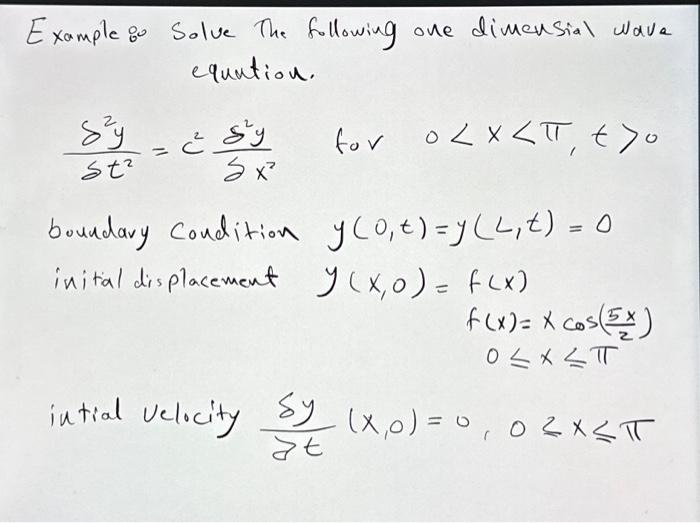 Example 8o Solve The following one dimensial wave
equution.
δ²y/δt² = c² δ²y/δx² for 0 < x < π, t > 0
boundary condition y(0,t) = y(L,t) = 0
inital displacement y(x,0) = f(x)
f(x) = x cos(5x/2)
0 ≤ x ≤ π
intial velocity δy/∂t (x,0) = 0, 0 ≤ x ≤ π